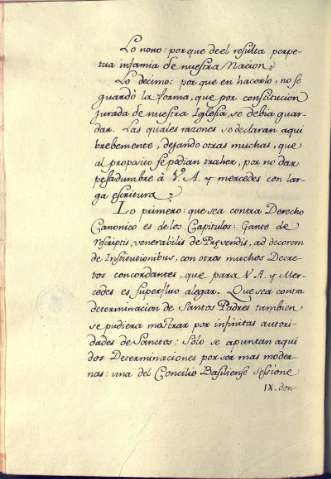 Lo nono: porque de el resulta perpe-
tua infamia de nuestra Nacion.
Lo decimo: porque en hacerlo, no se
guardó la forma, que por constitucion
jurada de nuestra Iglesia, se debia guar-
dar. Las quales razones se declaran aqui
brebemente, dejando otras muchas, que
al proposito se podian traher, por no dar
pesadumbre à V.A. y mercedes con lar-
ga escritura.
Lo primero: que sea contra Derecho
Canonico es de los Capitulos: Ganto de
rescriptis, venerabilis de Prevendis, ad decorem
de Institutionibus, con otros muchos Decre-
tos concordantes, que para V.A. y Mer-
cedes es superfluo alegar. Que sea contra
determinacion de Santos Padres tambien
se pudiera mostrar por infinitas autori-
dades de Sanctos: Solo se apuntan aqui
dos Determinaciones por ser mas moder-
nas: una del Concilio Basiliense sessione
IX. don-